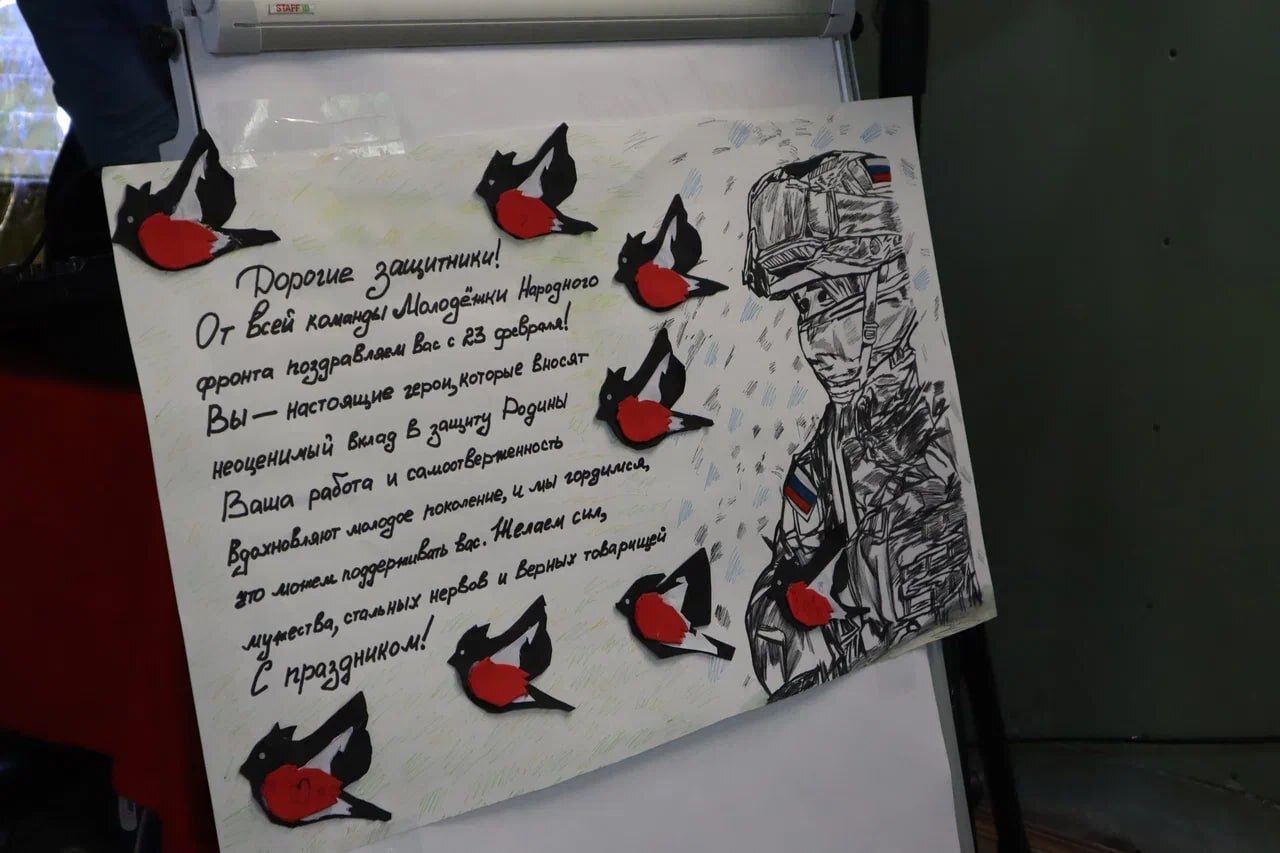 STAFF
Дорогие защитники!
От всей команды Молодёжки Народного
фронта поздравляем вас с 23 февраля!
Вы — настоящие герои, которые вносят
неоценимый вклад в защиту Родины
Ваша работа и самоотверженность
вдохновляют молодое поколение, и мы гордимся,
что можем поддерживать вас. Желаем сил,
мужества, стальных нервов и верных товарищей
С праздником!